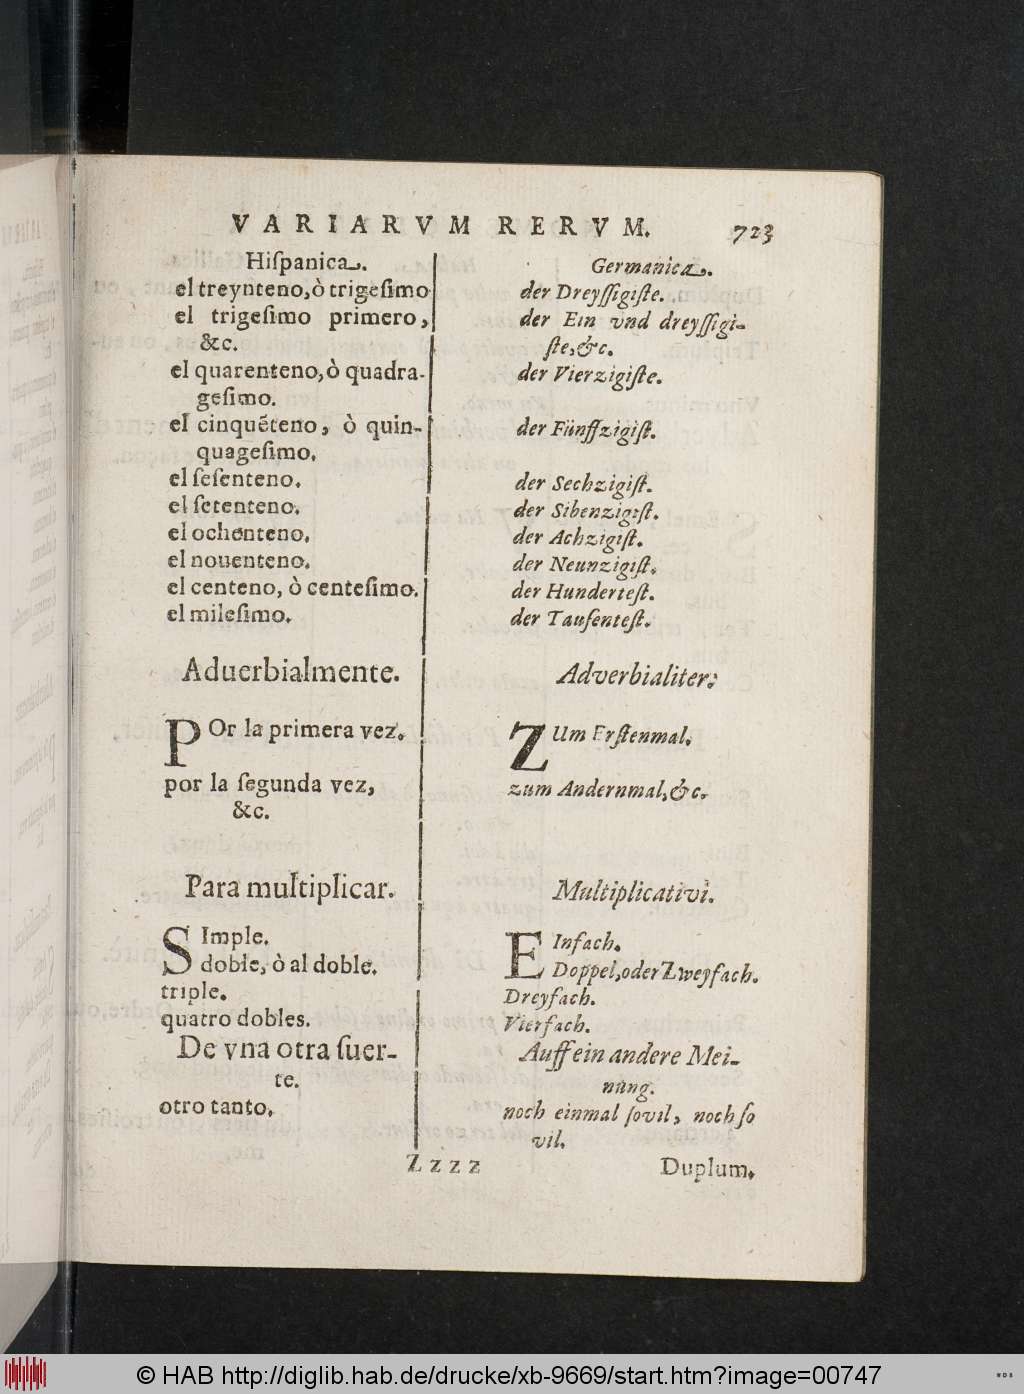 VARIARVM RERVM. 723
Hiſpanica.
el treynteno, ò trigeſimo
el trigeſimo primero,
&c.
el quarenteno, ò quadra-
geſimo.
el cinquẽteno, ò quin-
quageſimo.
el ſeſenteno.
el ſetenteno.
el ochenteno.
el nouenteno.
el centeno, ò centeſimo.
el mileſimo.
Aduerbialmente.
POr la primera vez.
por la ſegunda vez,
&c.
Para multiplicar.
SImple.
doble, ò al doble.
triple.
quatro dobles.
De vna otra ſuer-
te.
otro tanto.
Germanica.
der Dreyſſigiſte.
der Ein vnd dreyſſigi-
ſte, &c.
der Vierzigiſte.
der Fünffzigiſt.
der Sechzigiſt.
der Sibenzigiſt.
der Achzigiſt.
der Neunzigiſt.
der Hunderteſt.
der Tauſenteſt.
Adverbialiter:
ZUm Erſtenmal.
zum Andernmal, &c.
Multiplicativi.
EInfach.
Doppel, oder Zweyfach.
Dreyfach.
Vierfach.
Auff ein andere Mei-
nung.
noch einmal ſovil, noch ſo
vil.
Zzzz Duplum.
© HAB http://diglib.hab.de/drucke/xb-9669/start.htm?image=00747